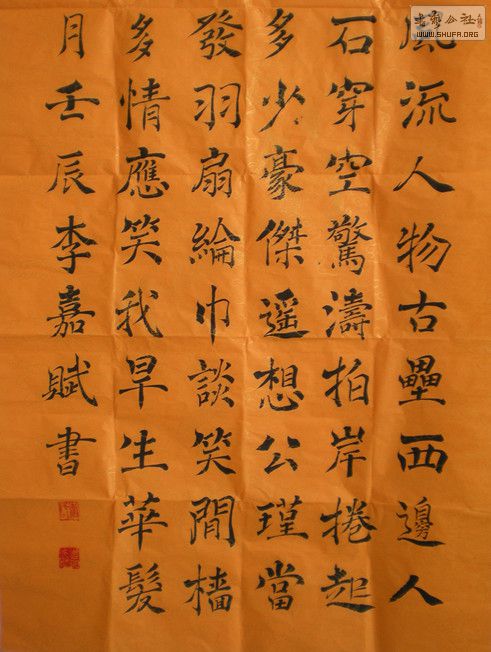 書藝公社
WWW.SHUFA.ORG
風流人物古壘西邊人
石穿空驚濤拍岸捲起
多少豪傑遥想公瑾當
發羽扇綸巾談笑間檣
多情應笑我早生華髮
月壬辰李嘉賦書